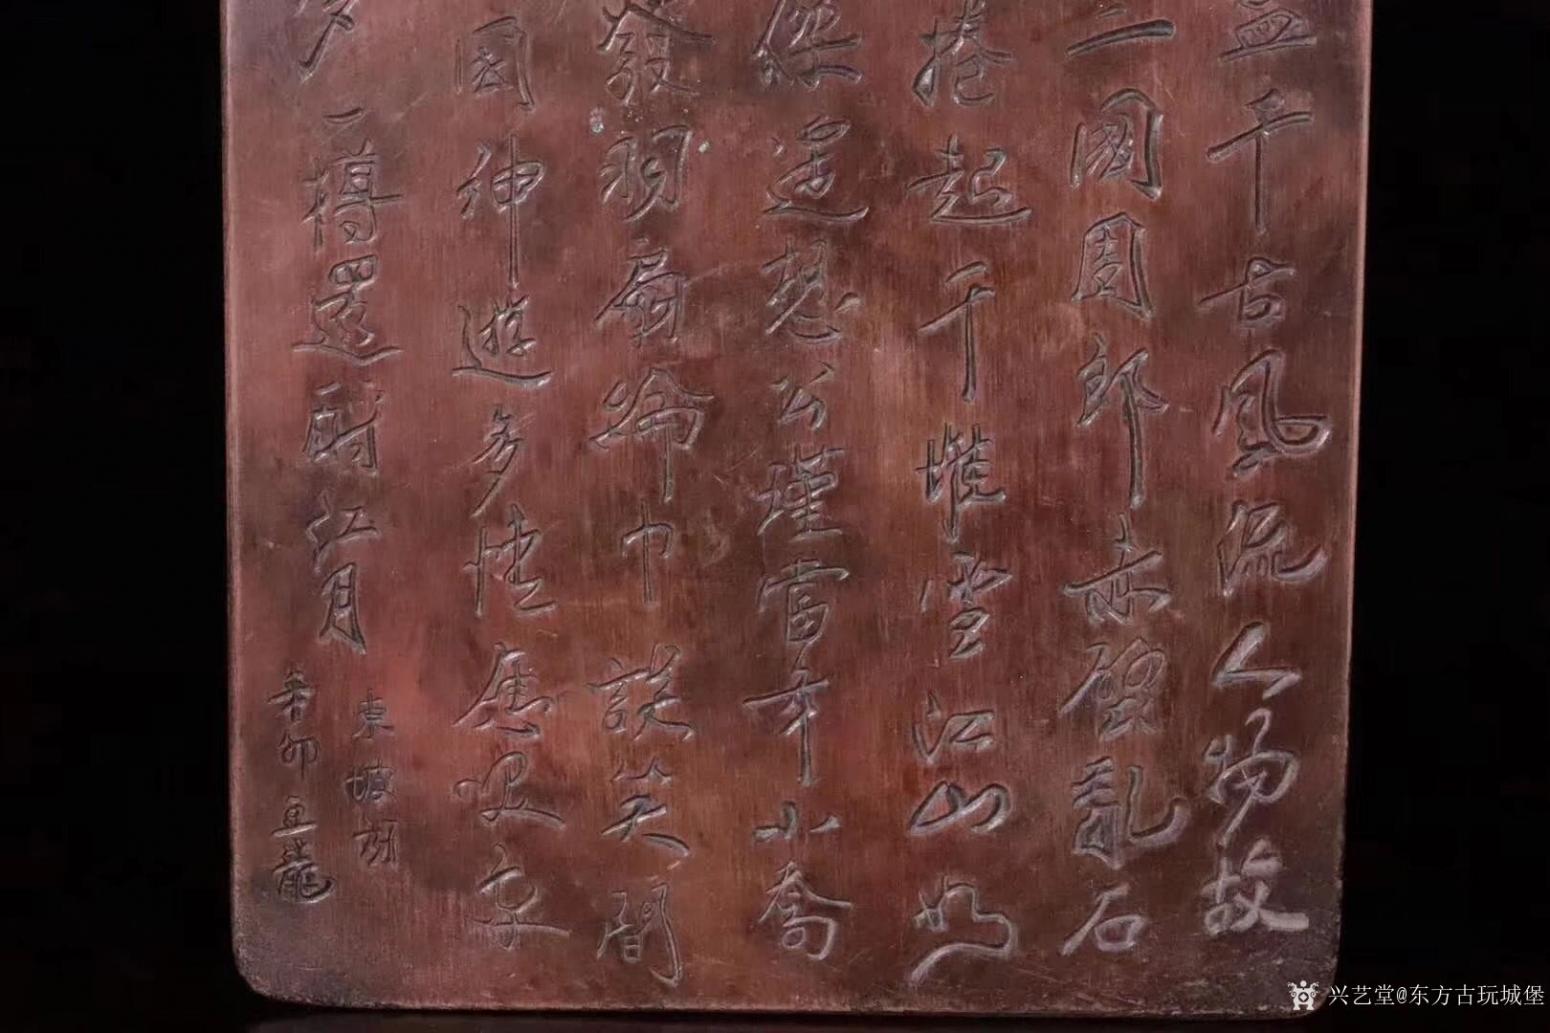 盡千古風流人物故
三國周郎赤壁亂石
捲起千堆雪江山如
傑遙想公瑾當年小喬
發羽扇綸巾談笑間
國神遊多情應咲
夢一樽還酹江月
東坡詞
辛卯 龍
兴艺堂@东方古玩城堡